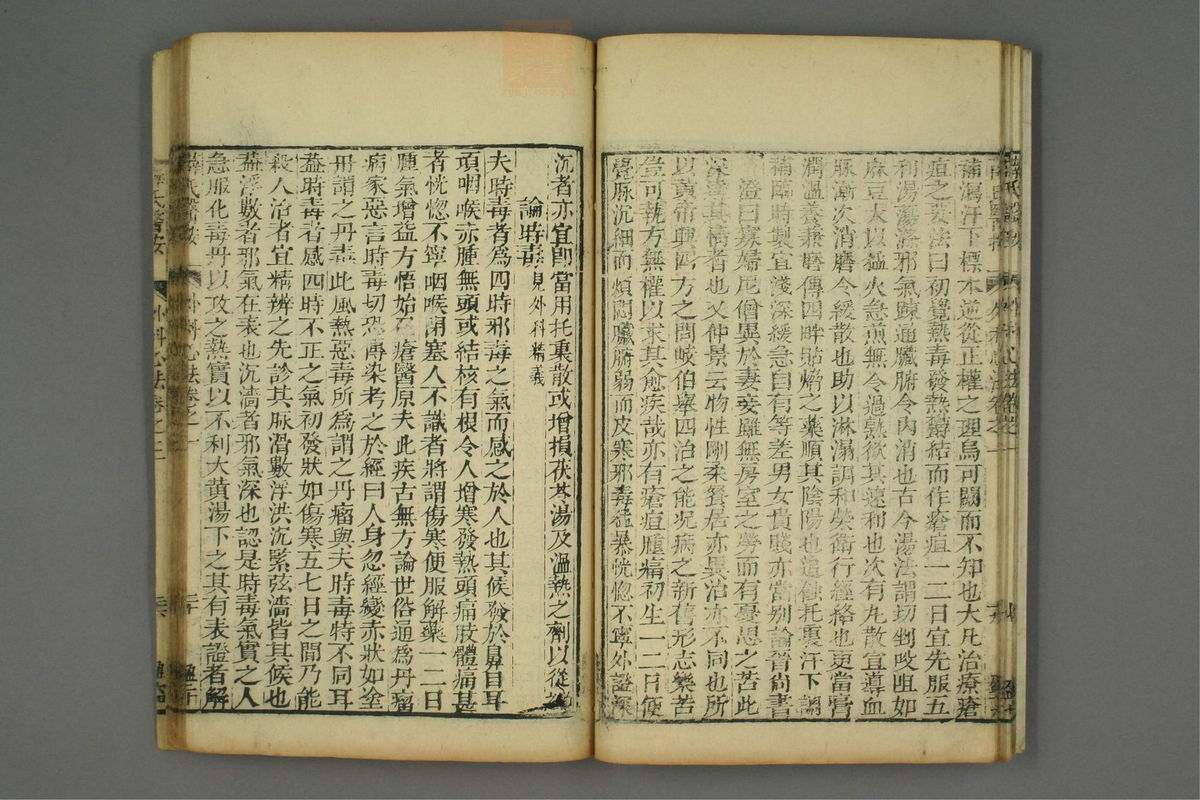 補瀉汗下標本逆從正權之理烏可闕而不知也大凡治療瘡
疽之要法曰初覺熱毒發熱鬱結而作瘡疽一二日宜先服五
利湯蕩滌邪氣疎通臟腑令內消也古今湯法謂切剉㕮咀如
麻豆大以猛火急煎無令過熟欲其速利也次有丸散宜導血
脉漸次消磨令緩散也助以淋溻調和榮衛行經絡也更當膏
潤溫養兼磨傅四畔貼㷸之藥順其陰陽也追蝕托裏汗下調
補臨時製宜淺深緩急自有等差男女貴賤亦當别論晉尚書
澄曰寡婦尼僧異於妻妾雖無房室之勞而有憂思之苦此
深達其情者也又仲景云物性剛柔飡居亦異治亦不同也所
以黃帝興四方之問岐伯舉四治之能况病之新舊形志樂苦
豈可執方無權以求其愈疾哉亦有瘡疽腫痛初生一二日便
覺脉沉細而煩悶臟腑弱而皮寒邪毒猛暴恍惚不寧外證深
沉者亦宜卽當用托裏散或增損茯苓湯及溫熱之劑以從治
論時毒見外科精義
夫時毒者爲四時邪毒之氣而感之於人也其候發於鼻目耳
頭咽喉赤腫無頭或結核有根令人增寒發熱頭痛肢體痛甚
者恍惚不寧咽喉閉塞人不識者將謂傷寒便服解藥一二日
腫氣增益方悟始召瘡醫原夫此疾古無方論世俗通爲丹瘤
病家惡言時毒切恐傳染考之於經曰人身忽經變赤狀如塗
丹謂之丹毒此風熱惡毒所爲謂之丹瘤與夫時毒特不同耳
蓋時毒者感四時不正之氣初發狀如傷寒五七日之間乃能
殺人治者宜精辨之先診其脉滑數浮洪沉緊弦濇皆其候也
蓋浮數者邪氣在表也沉濇者邪氣深也認是時毒氣實之人
急服化毒丹以攻之熱實以不利大黃湯下之其有表證者解
薛氏醫按 外科心法卷之二